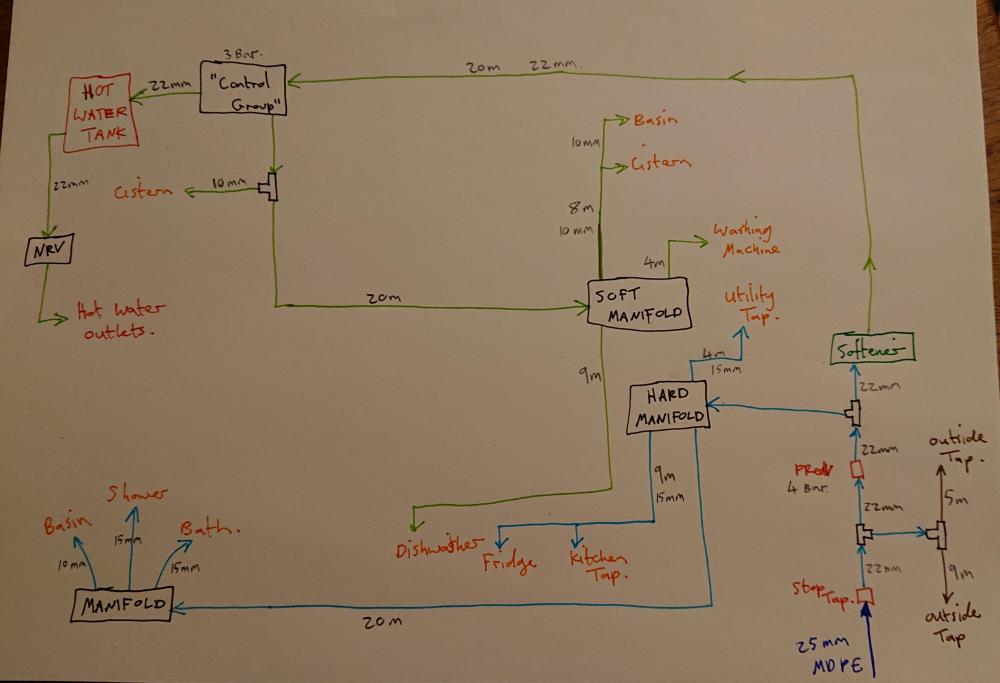 3 Bar.
"Control
Group"
22mm
20m 22mm.
HOT
WATER
TANK
Basin
10mm
Cistern
22mm
Cistern
10mm
8m
10mm
Washing
Machine
4m
NRV
SOFT
MANIFOLD
Utility
Tap.
20m
Hot water
outlets.
Softener
4m
15mm
9m
22mm
HARD
MANIFOLD
outside
Tap.
22mm
PRedV
4 Bar.
9m
15mm
5m
Shower
22mm
Basin
Bath.
Dishwasher
Fridge
Kitchen
Tap.
15mm
10mm
15mm
22mm
9m
Stop
Tap.
MANIFOLD
20m
outside
Tap
25mm
MDPE